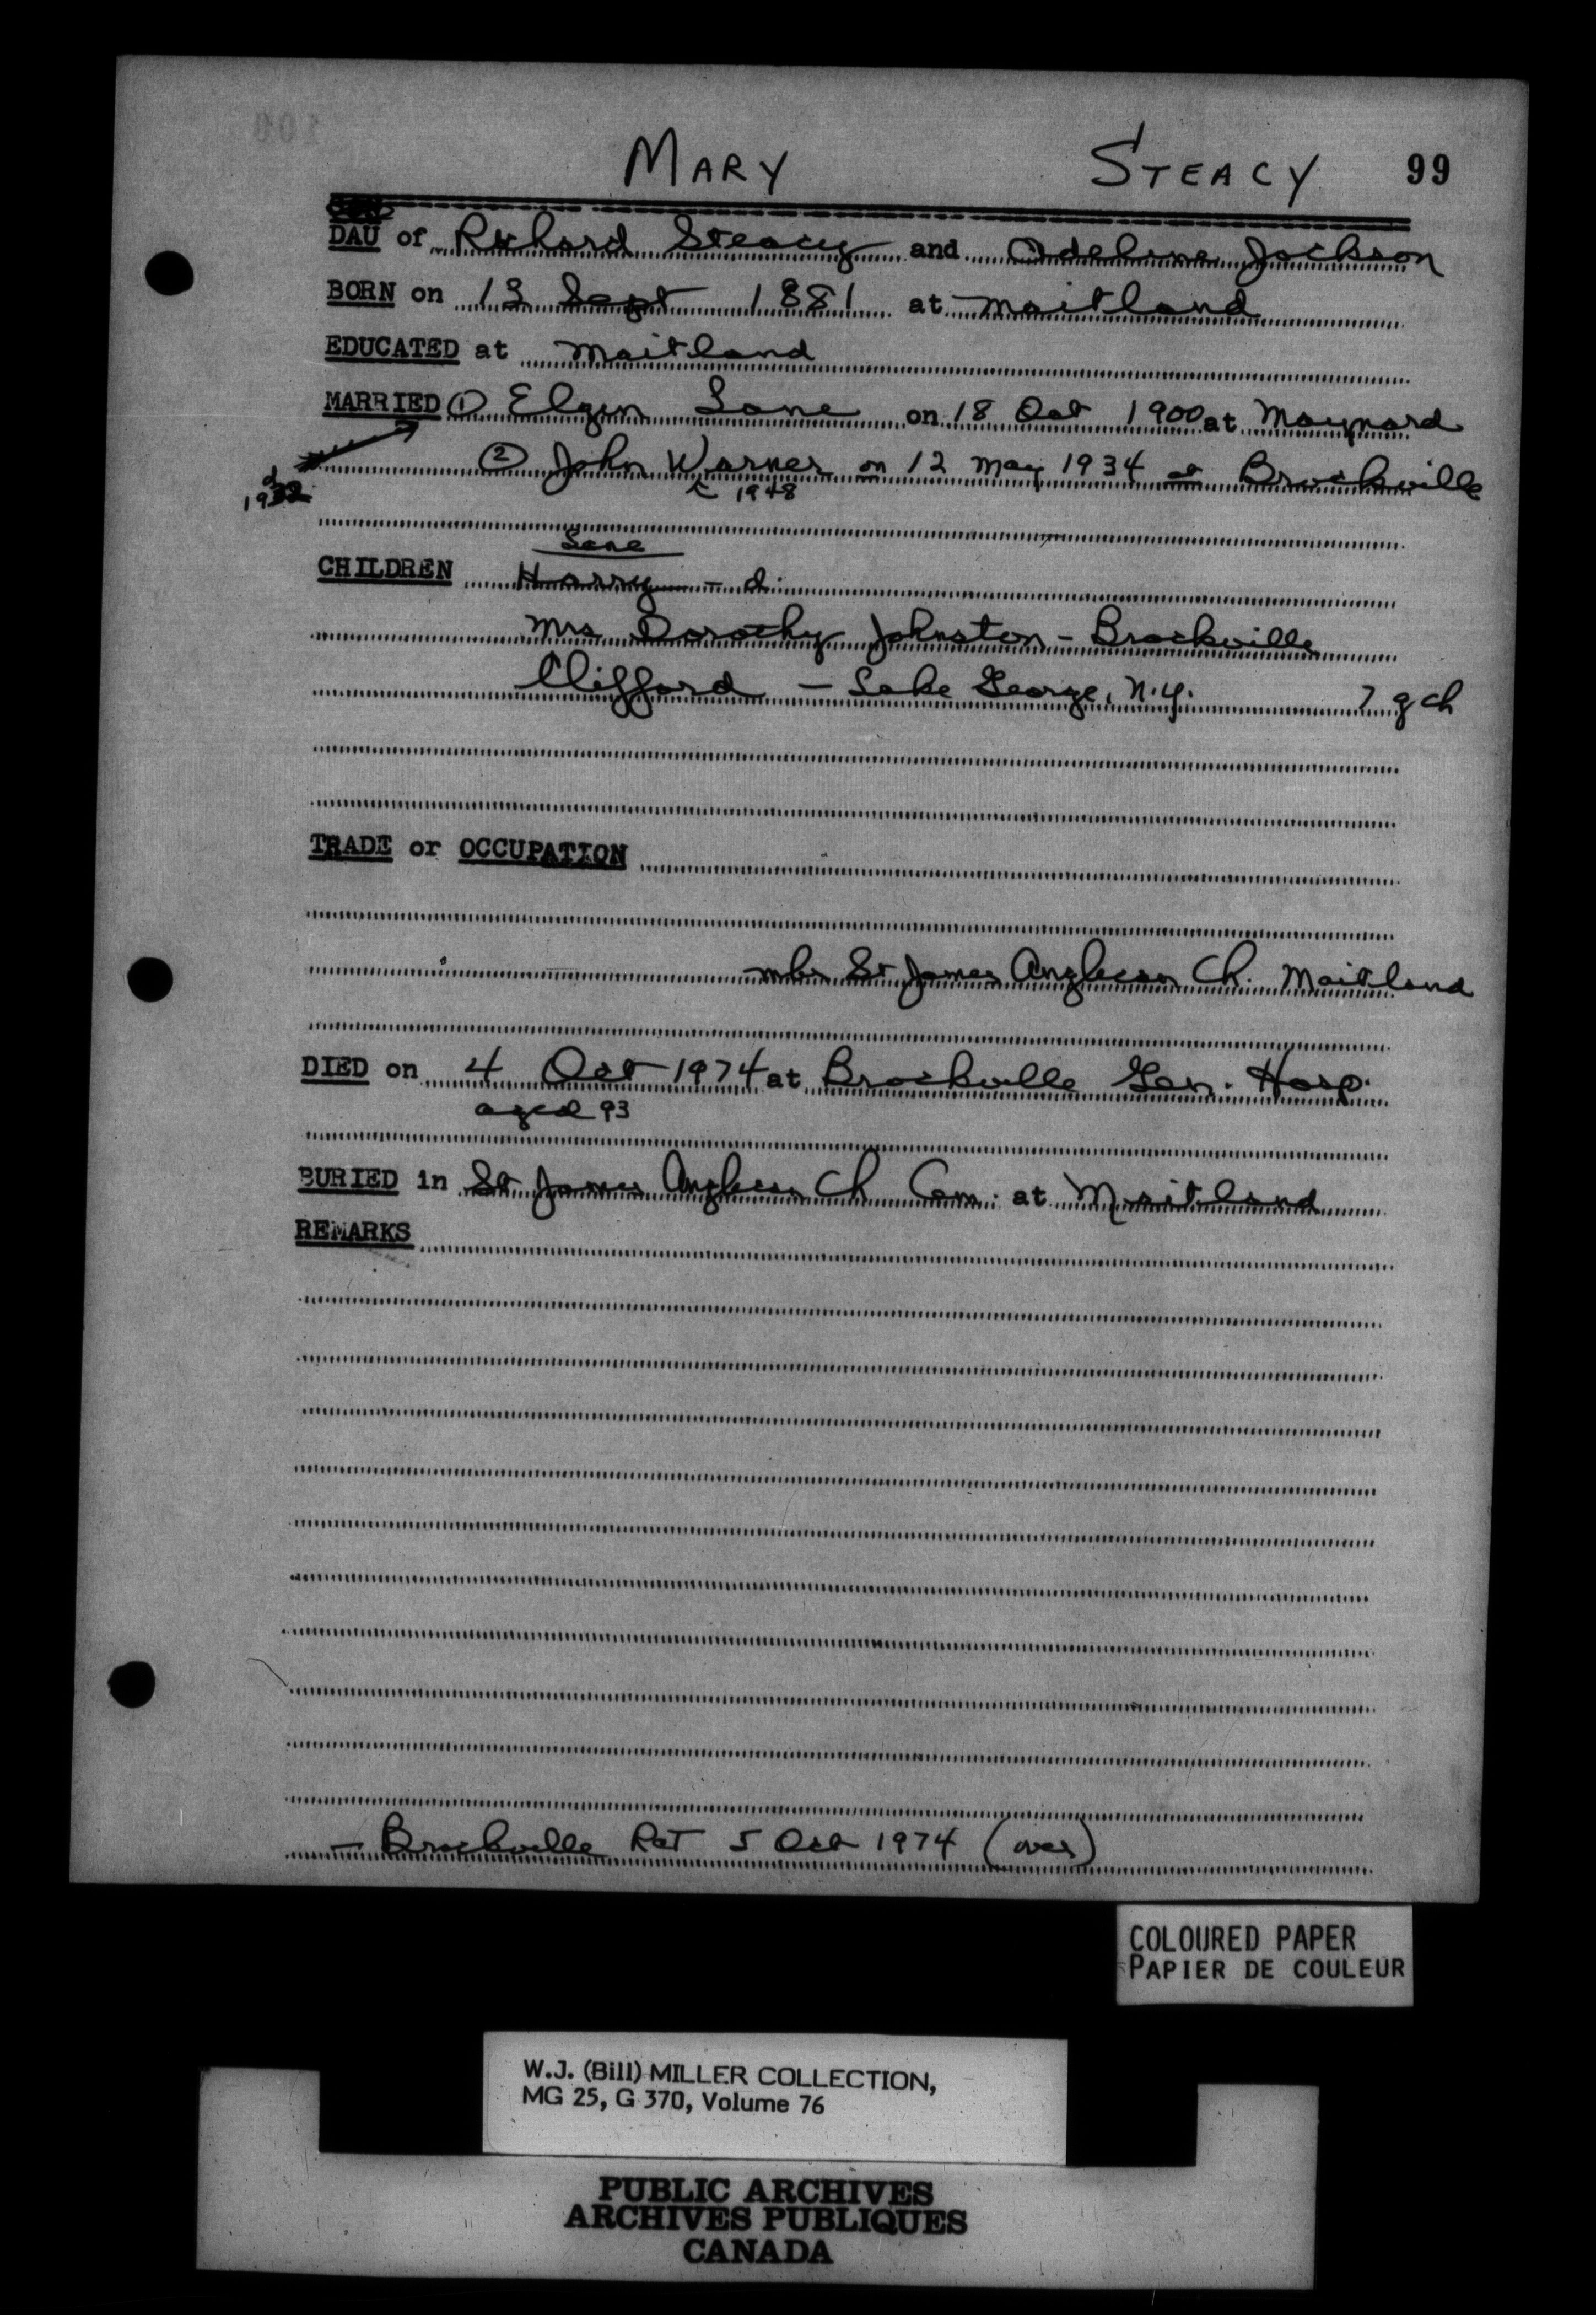 MARY STEACY 99
DAU of Richard Steacy and Adeline Jackson
BORN on 13 Sept 1881 at Maitland
EDUCATED at Maitland
MARRIED ① Elgin Lane on 18 Oct 1900 at Maynard
② John Warner on 12 May 1934 at Brockville
d 1932
1948
Lane
CHILDREN Harry - d.
Mrs Dorothy Johnston - Brockville
Clifford - Lake George, N.Y. 7 g ch
TRADE or OCCUPATION
mbr St James Anglican Ch. Maitland
DIED on 4 Oct 1974 at Brockville Gen. Hosp.
aged 93
BURIED in St James Anglican Ch Cem. at Maitland
REMARKS
- Brockville R&T 5 Oct 1974 (over)
COLOURED PAPER
PAPIER DE COULEUR
W.J. (Bill) MILLER COLLECTION,
MG 25, G 370, Volume 76
PUBLIC ARCHIVES
ARCHIVES PUBLIQUES
CANADA